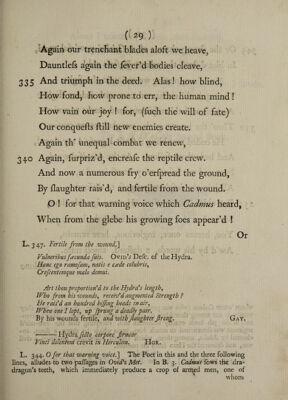 ( 29 )
Again our trenchant blades aloft we heave,
Dauntleſs again the ſever'd bodies cleave,
335 And triumph in the deed. Alas! how blind,
How fond, how prone to err, the human mind!
How vain our joy! for, (ſuch the will of fate)
Our conqueſts ſtill new enemies create.
Again th' unequal combat we renew,
340 Again, ſurpriz'd, encreaſe the reptile crew.
And now a numerous fry o'erſpread the ground,
By ſlaughter rais'd, and fertile from the wound.
O! for that warning voice which Cadmus heard,
When from the glebe his growing foes appear'd!
Or
L. 347. Fertile from the wound.]
Vulneribus fœcunda ſuis. OVID's Deſc. of the Hydra.
Hanc ego ramoſam, natis e cæde colubris,
Creſcentemque malo domui.
Art thou proportion'd to the Hydra's length,
Who from his wounds, receiv'd augmented Strength?
He rais'd an hundred hiſſing heads in air,
When one I lopt, up ſprung a deadly pair.
By his wounds fertile, and with ſlaughter ſtrong. GAY.
——— Hydra ſecto corpore firmior
Vinci dolentem crevit in Herculem. HOR.
L. 344. O for that warning voice.] The Poet in this and the three following
lines, alludes to two paſſages in Ovid's Met. In B. 3. Cadmus ſows the dra-
dragon's teeth, which immediately produce a crop of armed men, one of
whom